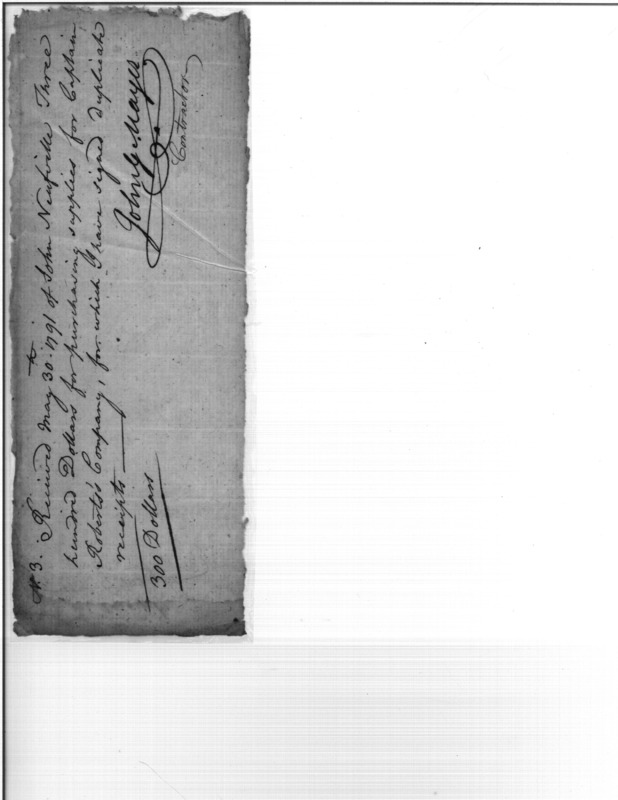 No 3. Received May 30th 1791 of John Neufville Three
hundred Dollars for purchasing supplies for Captain
Roberts's Company, for which I have signed duplicate
receipts
300 Dollars
John G Mayer
Contractor